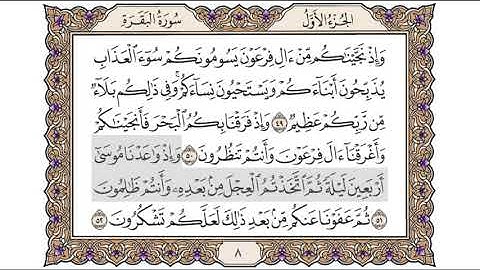 الجزء الأول
سورة البقرة
وَإِذْ نَجَّيْنَٰكُم مِّنْ ءَالِ فِرْعَوْنَ يَسُومُونَكُمْ سُوٓءَ ٱلْعَذَابِ
يُذَبِّحُونَ أَبْنَآءَكُمْ وَيَسْتَحْيُونَ نِسَآءَكُمْ ۚ وَفِى ذَٰلِكُم بَلَآءٌ
مِّن رَّبِّكُمْ عَظِيمٌ ٤٩ وَإِذْ فَرَقْنَا بِكُمُ ٱلْبَحْرَ فَأَنجَيْنَٰكُمْ
وَأَغْرَقْنَآ ءَالَ فِرْعَوْنَ وَأَنتُمْ تَنظُرُونَ ٥٠ وَإِذْ وَٰعَدْنَا مُوسَىٰٓ
أَرْبَعِينَ لَيْلَةً ثُمَّ ٱتَّخَذْتُمُ ٱلْعِجْلَ مِنۢ بَعْدِهِۦ وَأَنتُمْ ظَٰلِمُونَ
٥١ ثُمَّ عَفَوْنَا عَنكُم مِّنۢ بَعْدِ ذَٰلِكَ لَعَلَّكُمْ تَشْكُرُونَ ٥٢
٨